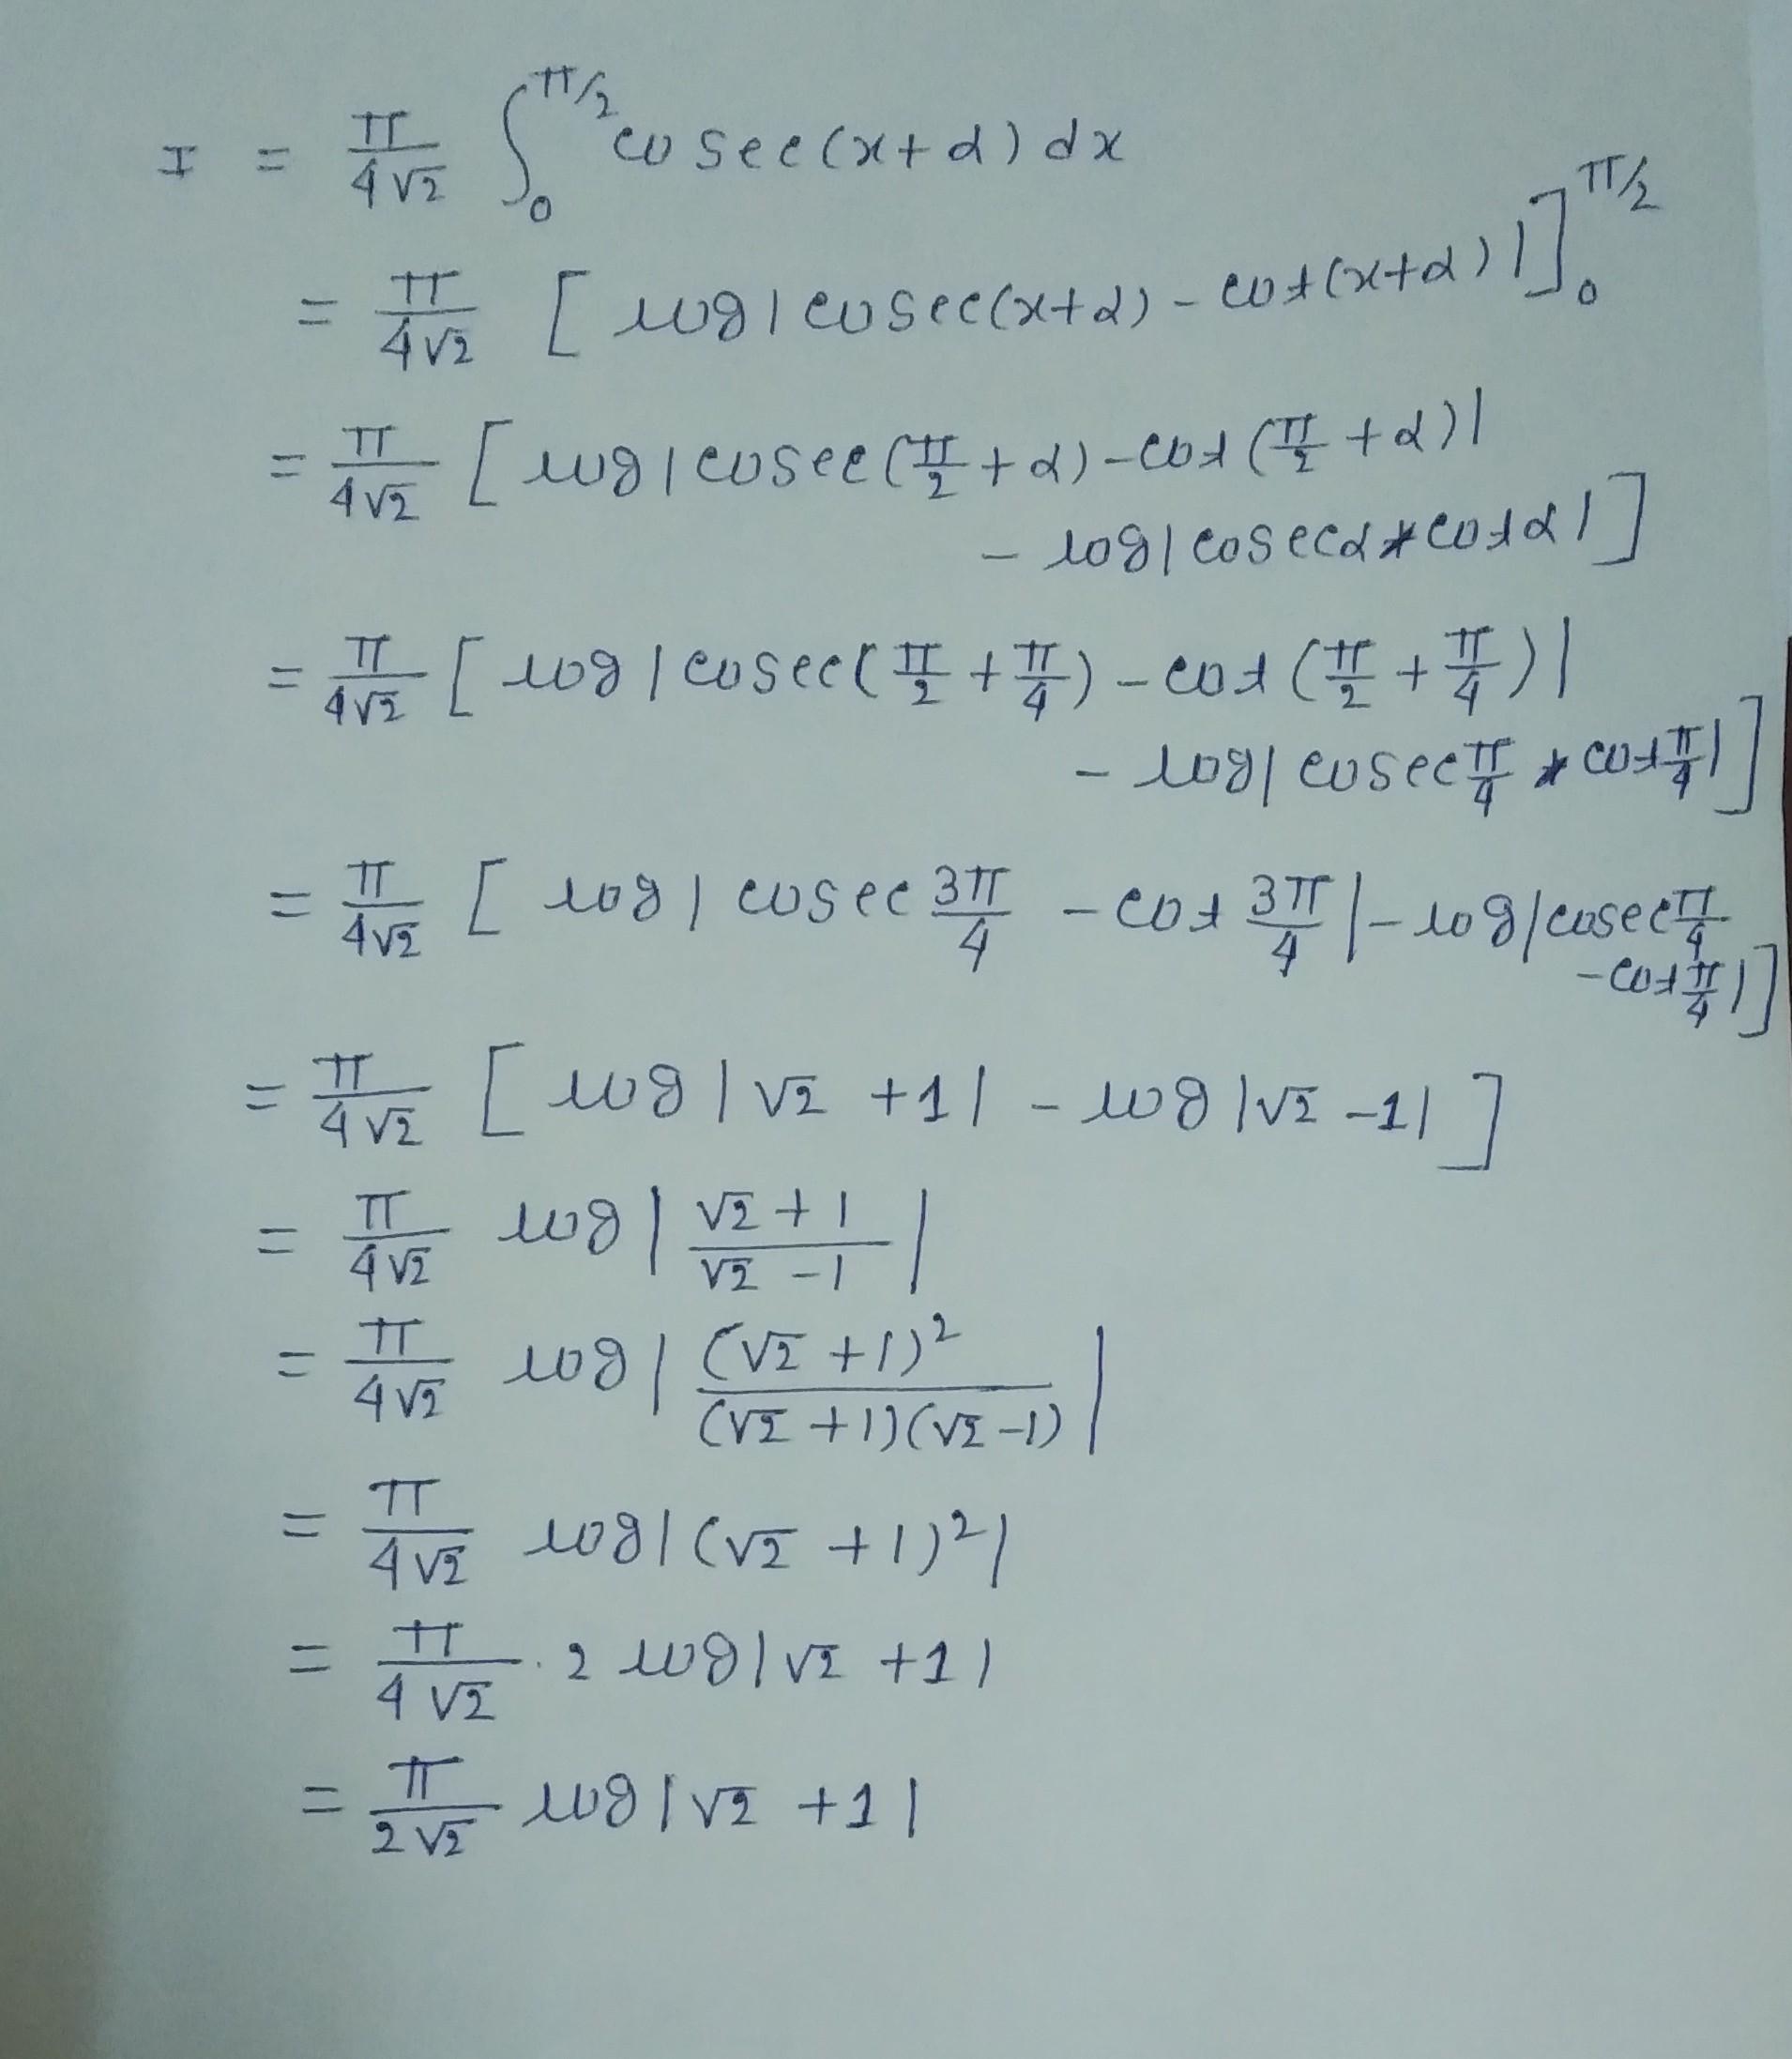 I = π/4√2 ∫₀^π/2 cosec(x+α) dx
= π/4√2 [ log|cosec(x+α) - cot(x+α)|]₀^π/2
= π/4√2 [ log|cosec(π/2 + α) - cot(π/2 + α)|
- log|cosecα * cotα|]
= π/4√2 [ log|cosec(π/2 + π/4) - cot(π/2 + π/4)|
- log|cosec π/4 * cot π/4|]
= π/4√2 [ log| cosec 3π/4 - cot 3π/4 | - log|cosec π/4
- cot π/4|]
= π/4√2 [ log|√2 +1| - log|√2 -1| ]
= π/4√2 log| √2+1/√2-1 |
= π/4√2 log| (√2+1)²/(√2+1)(√2-1) |
= π/4√2 log|(√2 +1)²|
= π/4√2 . 2 log|√2 +1|
= π/2√2 log|√2 +1|